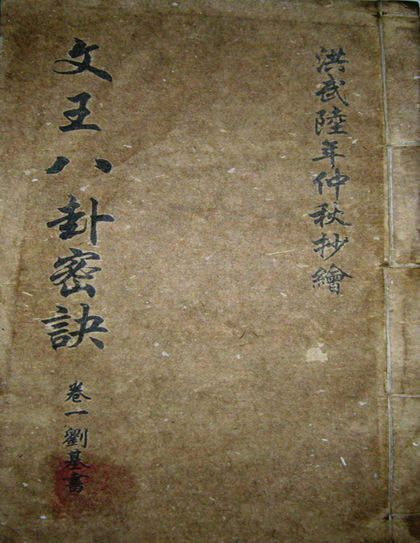 洪武陸年仲秋抄繪
文王八卦密訣
卷一劉基書